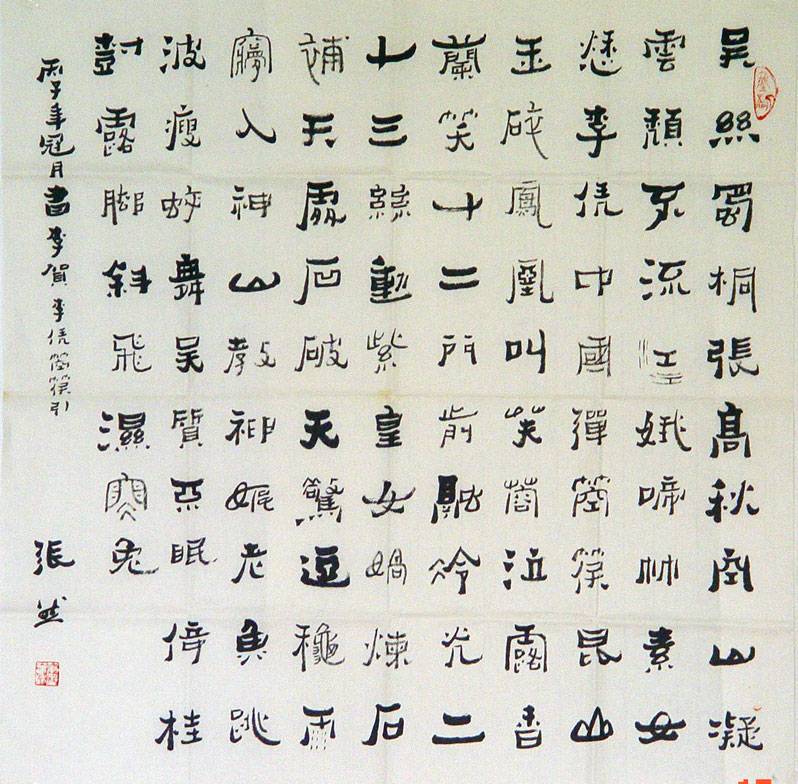 吴絲蜀桐張高秋空山凝
雲頹不流江娥啼竹素女
愁李凭中國彈箜篌昆山
玉碎鳳凰叫芙蓉泣露香
蘭笑十二門前融冷光二
十三絲動紫皇女媧煉石
補天處石破天驚逗秋雨
夢入神山教神嫗老魚跳
波瘦蛟舞吴質不眠倚桂
樹露脚斜飛濕寒兔
丙子年冠月書李賀李凭箜篌引
張然